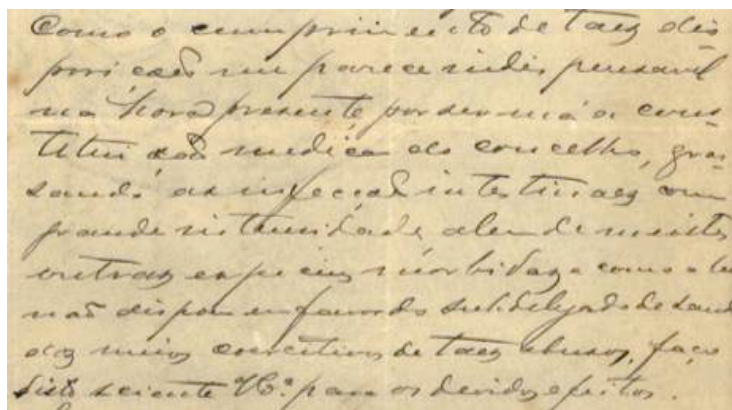 Como o cumprimento de taes dis
posições me parece indispensavel
na hora presente, por ser má a cons
tituição medica do concelho, gras
sando as infecções intestinaes com
grande intensidade, alem de muitas
outras especies morbidas e como a lei
não dispõe em favor do subdelegado de saude
dos meios coercitivos de taes abusos, faço
disto sciente V. Ex.ª para os devidos efeitos.